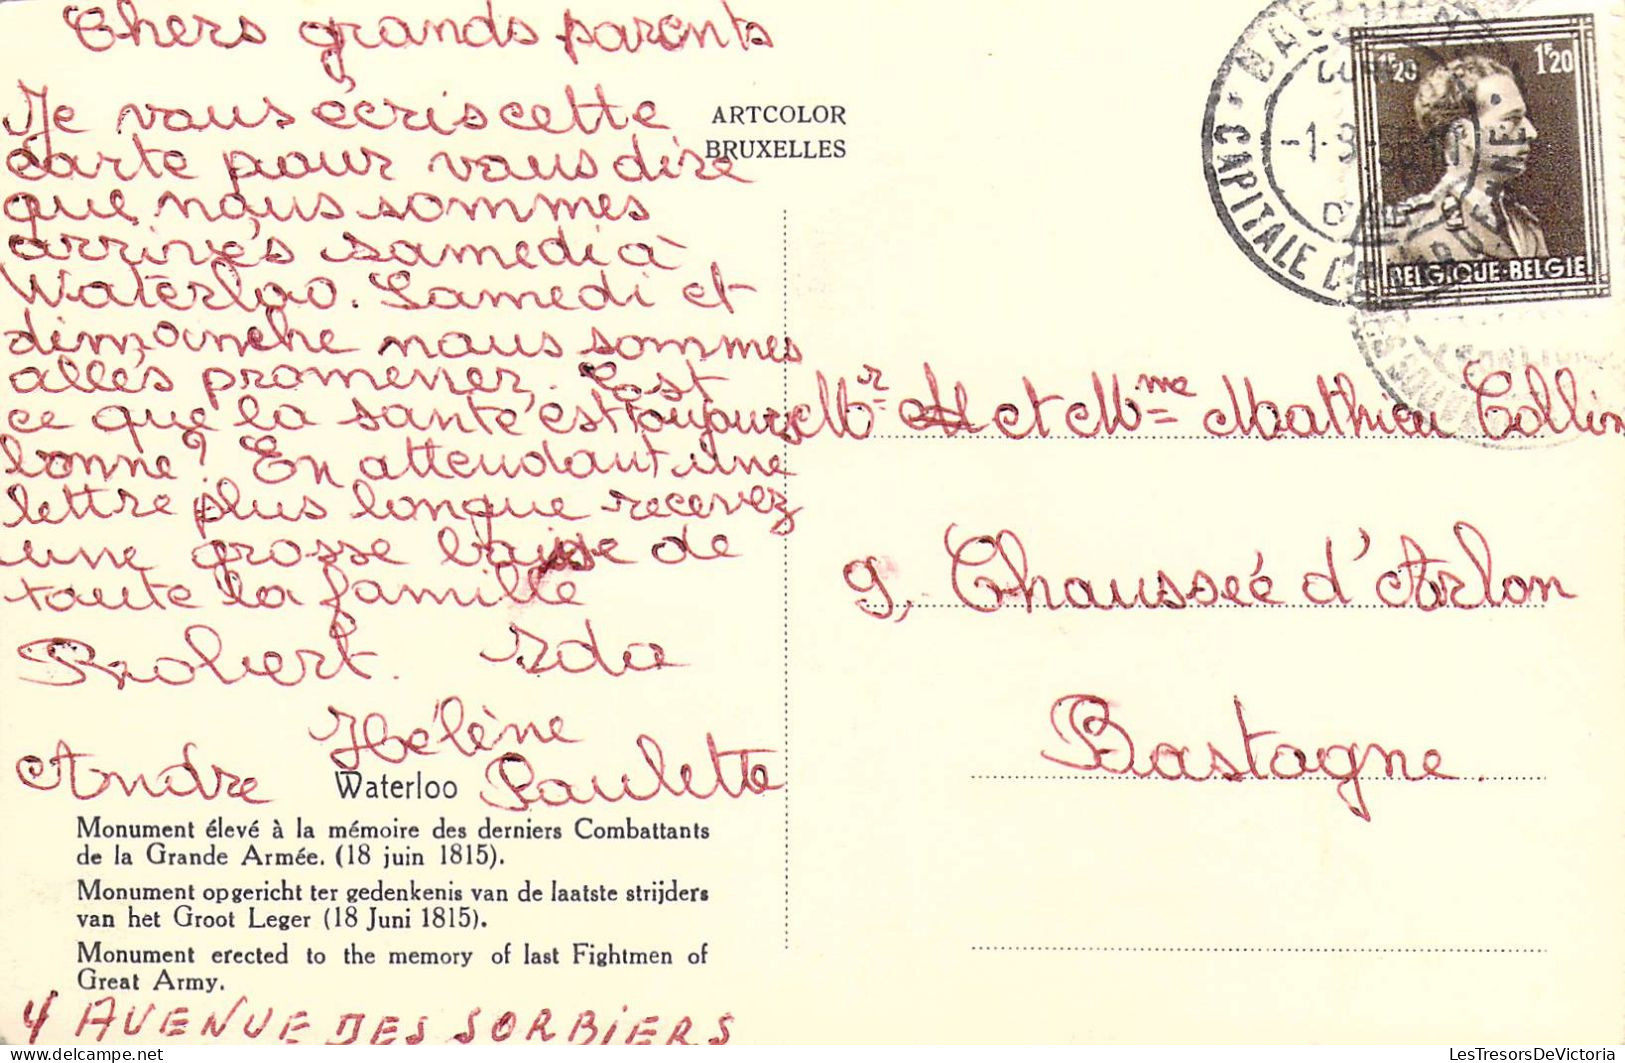 Chers grands parents
Je vous écris cette
carte pour vous dire
que nous sommes
arrivés samedi à
Waterloo. Samedi et
dimanche nous sommes
allés promener. Est
ce que la santé est toujours
bonne? En attendant une
lettre plus longue recevez
une grosse baise de
toute la famille
Robert. Ida
Hélène
Andre Paulette
ARTCOLOR
BRUXELLES
Waterloo
Monument élevé à la mémoire des derniers Combattants
de la Grande Armée. (18 juin 1815).
Monument opgericht ter gedenkenis van de laatste strijders
van het Groot Leger (18 Juni 1815).
Monument erected to the memory of last Fightmen of
Great Army.
4 AVENUE DES SORBIERS
1F20 1F20
BELGIQUE-BELGIE
CAPITALE
Mr et Mme Mathieu Collin
9, Chaussée d'Arlon
Bastogne.
https://www.delcampe.net
LesTresorsDeVictoria